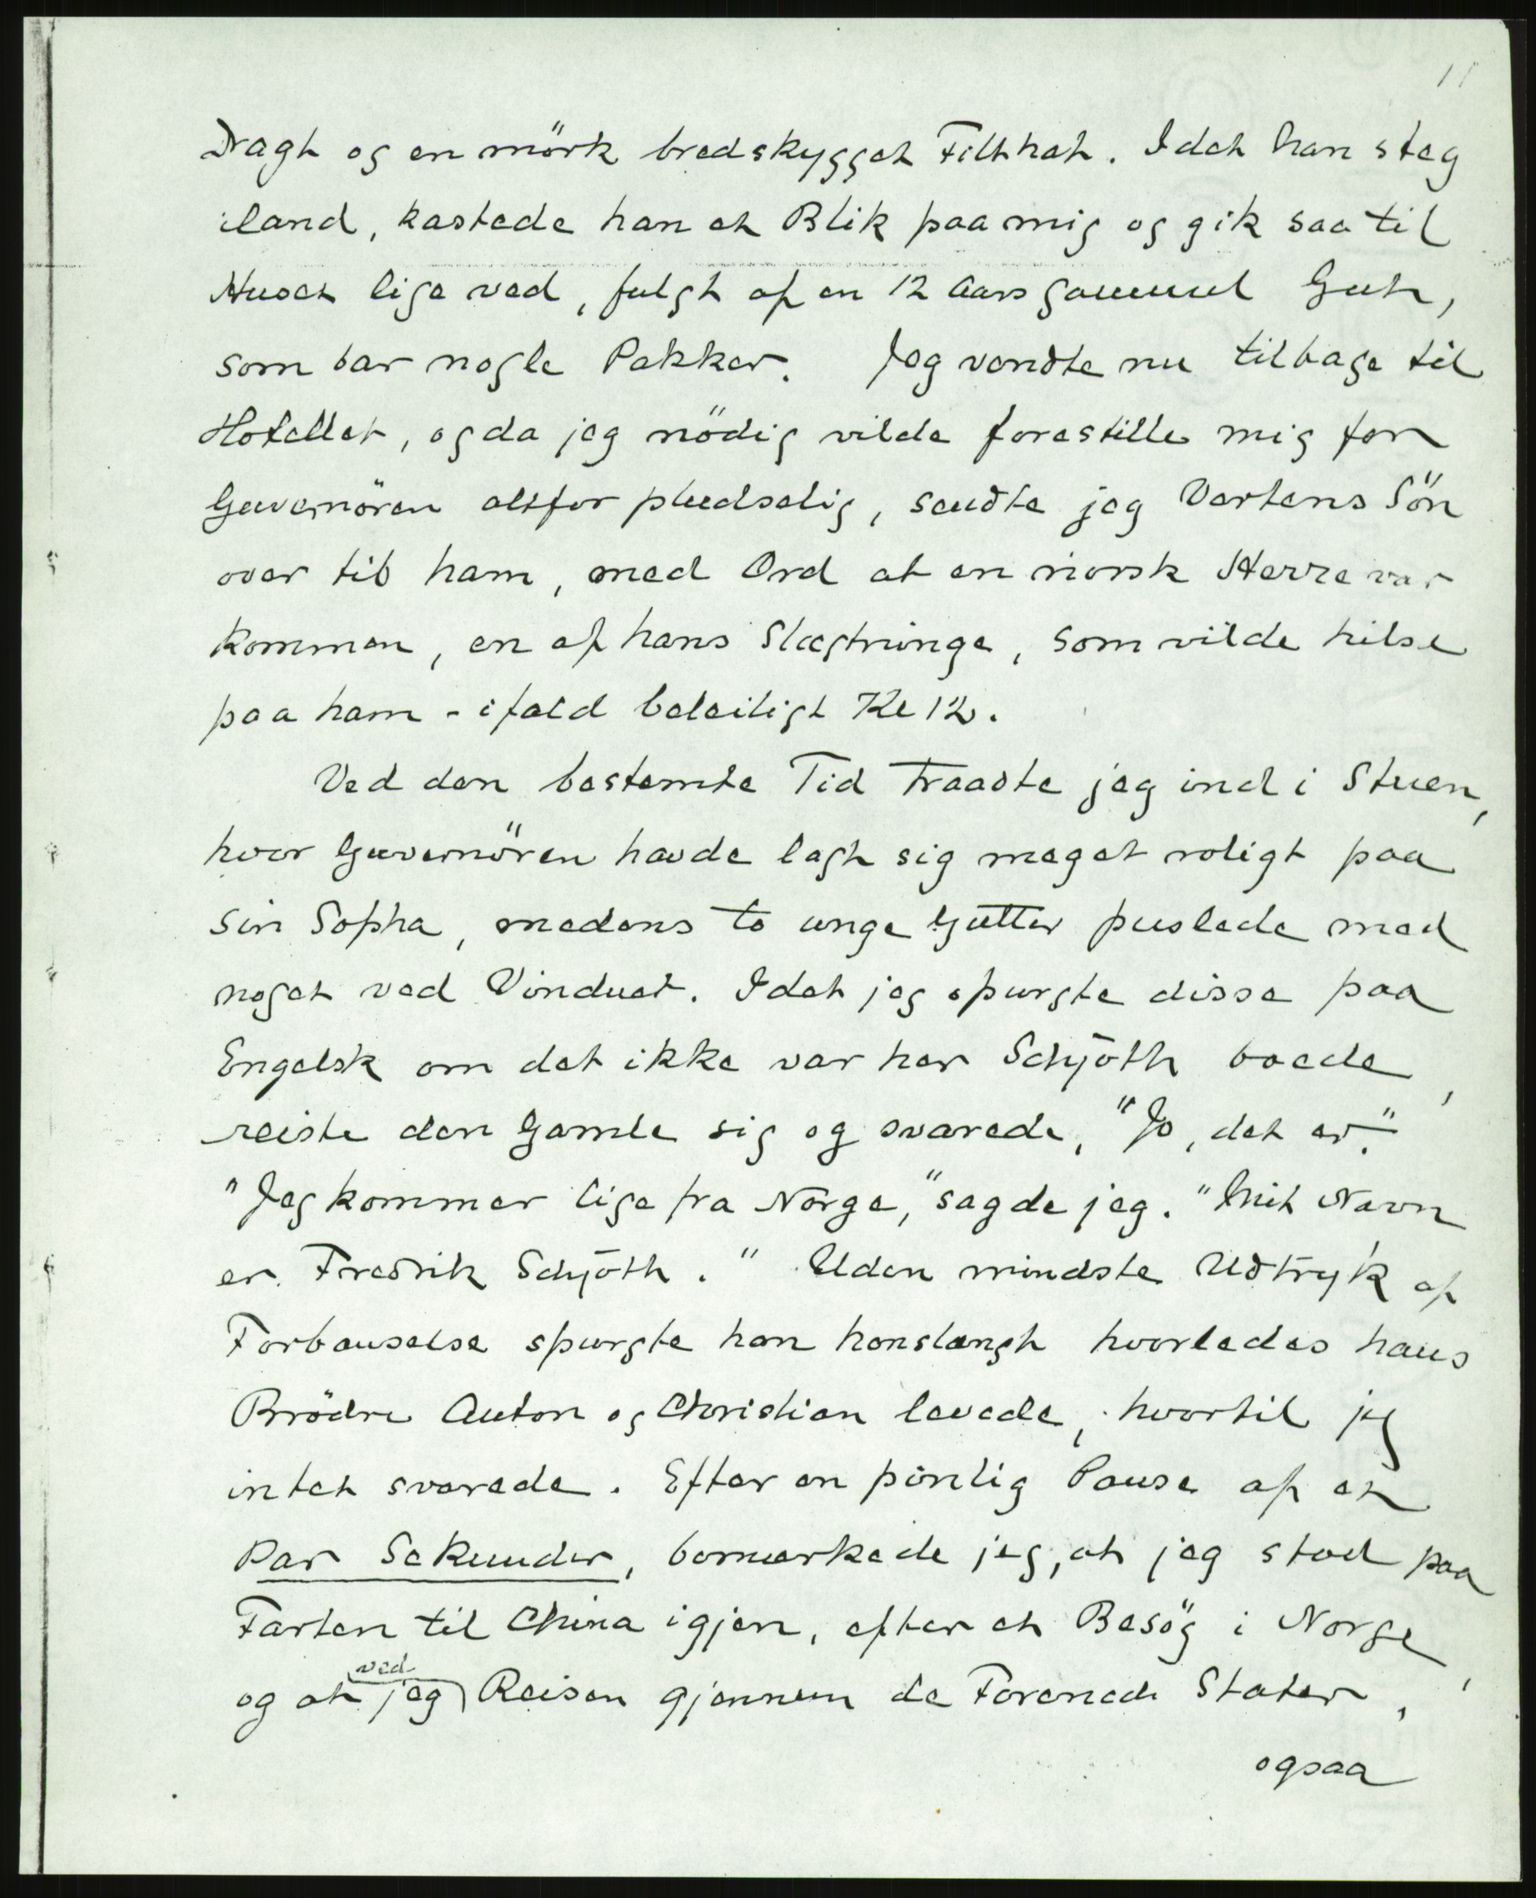 11
Dragt og en mörk bredskygget Filthat. Idet han steg
iland, kastede han et Blik paa mig og gik saa til
Huset lige ved, fulgt af en 12 Aars gammel Gut,
som bar nogle Pakker. Jeg vendte nu tilbage til
Hotellet, og da jeg nödig vilde forestille mig for
Guvernören altfor pludselig, sendte jeg Vertens Sön
over til ham, med Ord at en norsk Herre var
kommen, en af hans Slægtninge, som vilde hilse
paa ham - ifald beleiligt Kl 12.
Ved den bestemte Tid traadte jeg ind i Stuen,
hvor Guvernören havde lagt sig meget roligt paa
sin Sopha, medens to unge Gutter puslede med
noget ved Vinduet. Idet jeg spurgte disse paa
Engelsk om det ikke var her Schjöth boede,
reiste den Gamle sig og svarede, "Jo, det er."
"Jeg kommer lige fra Norge," sagde jeg. "Mit Navn
er Fredrik Schjöth." Uden mindste Udtryk af
Forbauselse spurgte han henslængt hvorledes hans
Brödre Anton og Christian levede, hvortil jeg
intet svarede. Efter en pinlig Pause af et
Par Sekunder, bemærkede jeg, at jeg stod paa
Farten til China igjen, efter et Besög i Norge,
og at jeg ved Reisen gjennem de Forenede Stater,
ogsaa